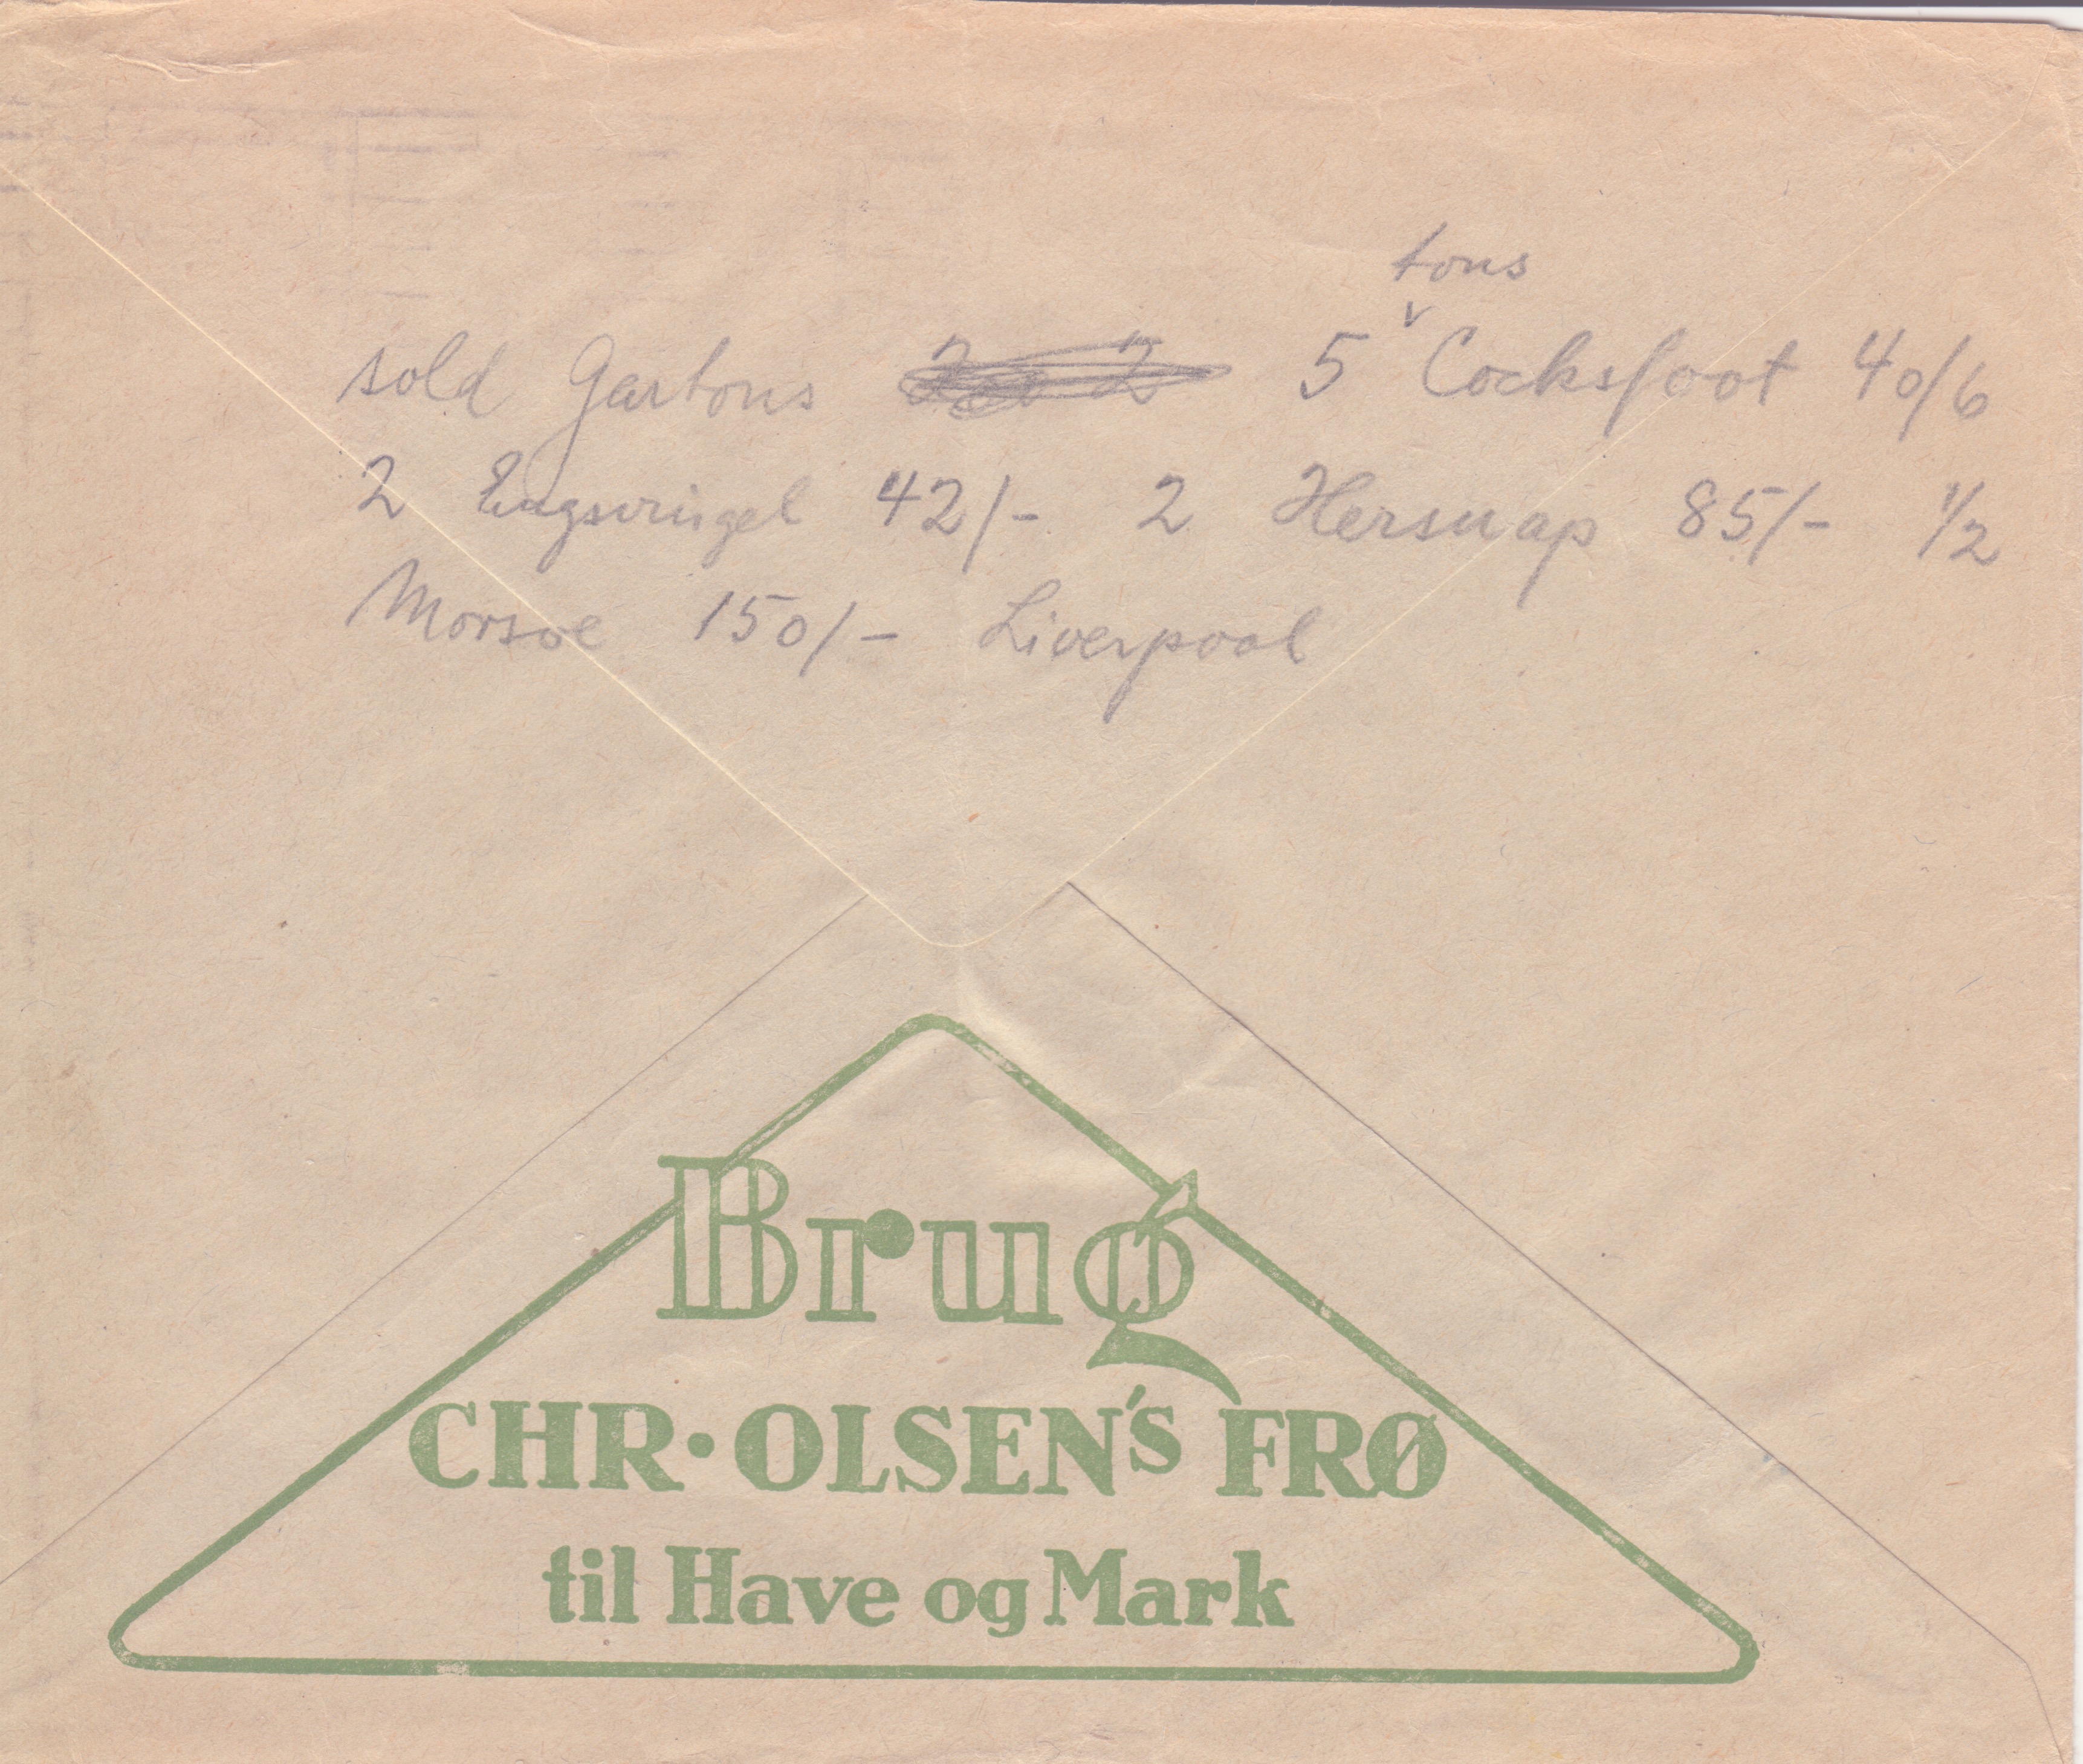 tons
sold Gartons 5 Cocksfoot 40/6
2 Engsvingel 42/- 2 Hersnap 85/- 1/2
Morsoe 150/- Liverpool
Brug
CHR·OLSEN'S FRØ
til Have og Mark